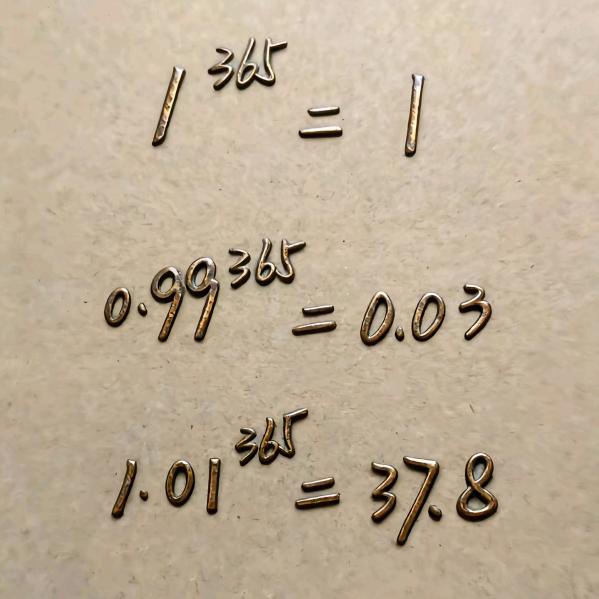 1³⁶⁵ = 1
0.99³⁶⁵ = 0.03
1.01³⁶⁵ = 37.8